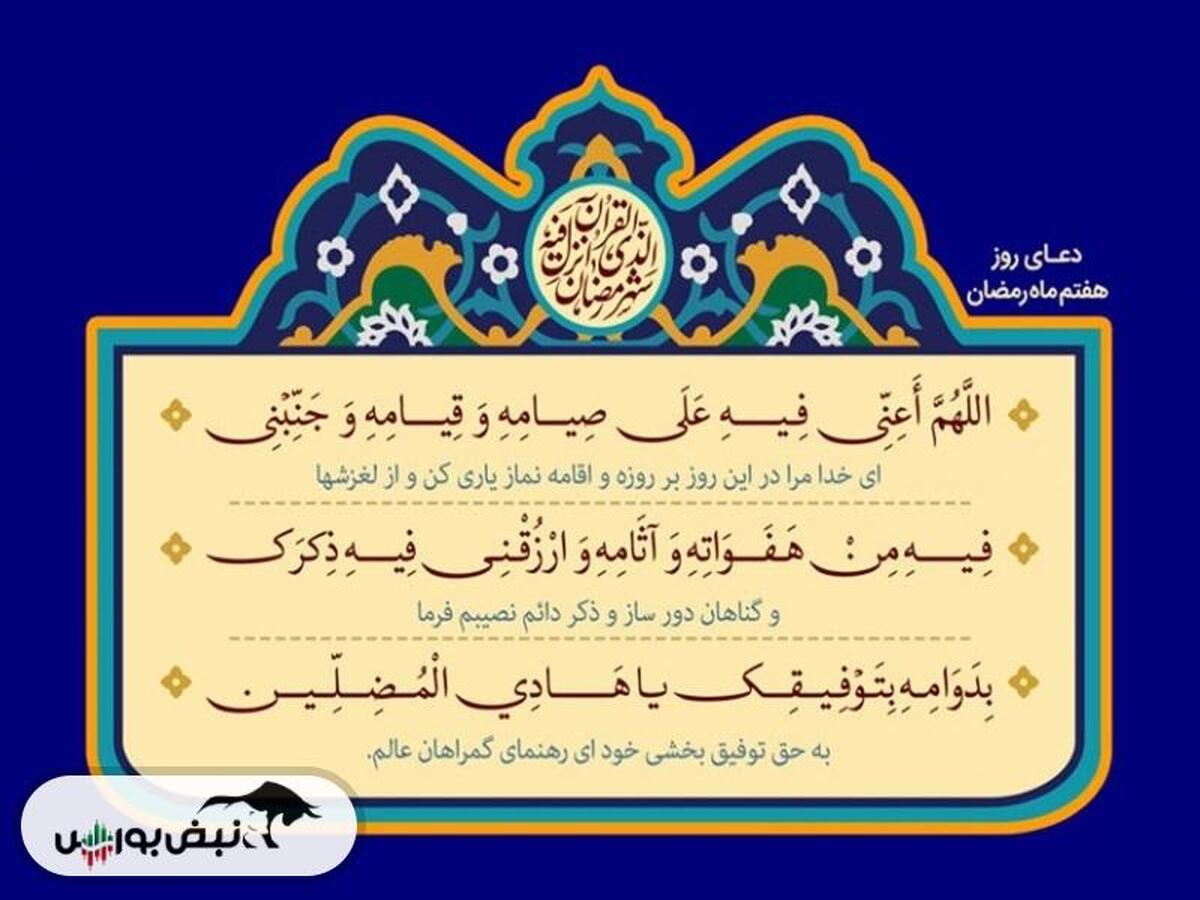 شهر رمضان الذی انزل فیه القرآن
دعـای روز
هفتم ماه رمضان
اللَّهُمَّ أَعِنِّی فِیـهِ عَلَی صِیـامِهِ وَ قِیـامِهِ وَ جَنِّبْنِی
ای خدا مرا در این روز بر روزه و اقامه نماز یاری کن و از لغزشها
فِیـهِ مِنْ هَفَـوَاتِهِ وَ آثَامِهِ وَ ارْزُقْنِـی فِیـهِ ذِکرَک
و گناهان دور ساز و ذکر دائم نصیبم فرما
بِدَوَامِـهِ بِتَوْفِیـقِـک یـا هَـادِي الْمُـضِـلِّیـن.
به حق توفیق بخشی خود ای رهنمای گمراهان عالم.
نبض بورس